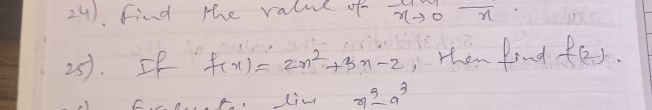 24). Find the value of lim x→0 — x .
25). If f(x) = 2x² + 3x - 2, then find f(2).
lim x⁹ - a⁹